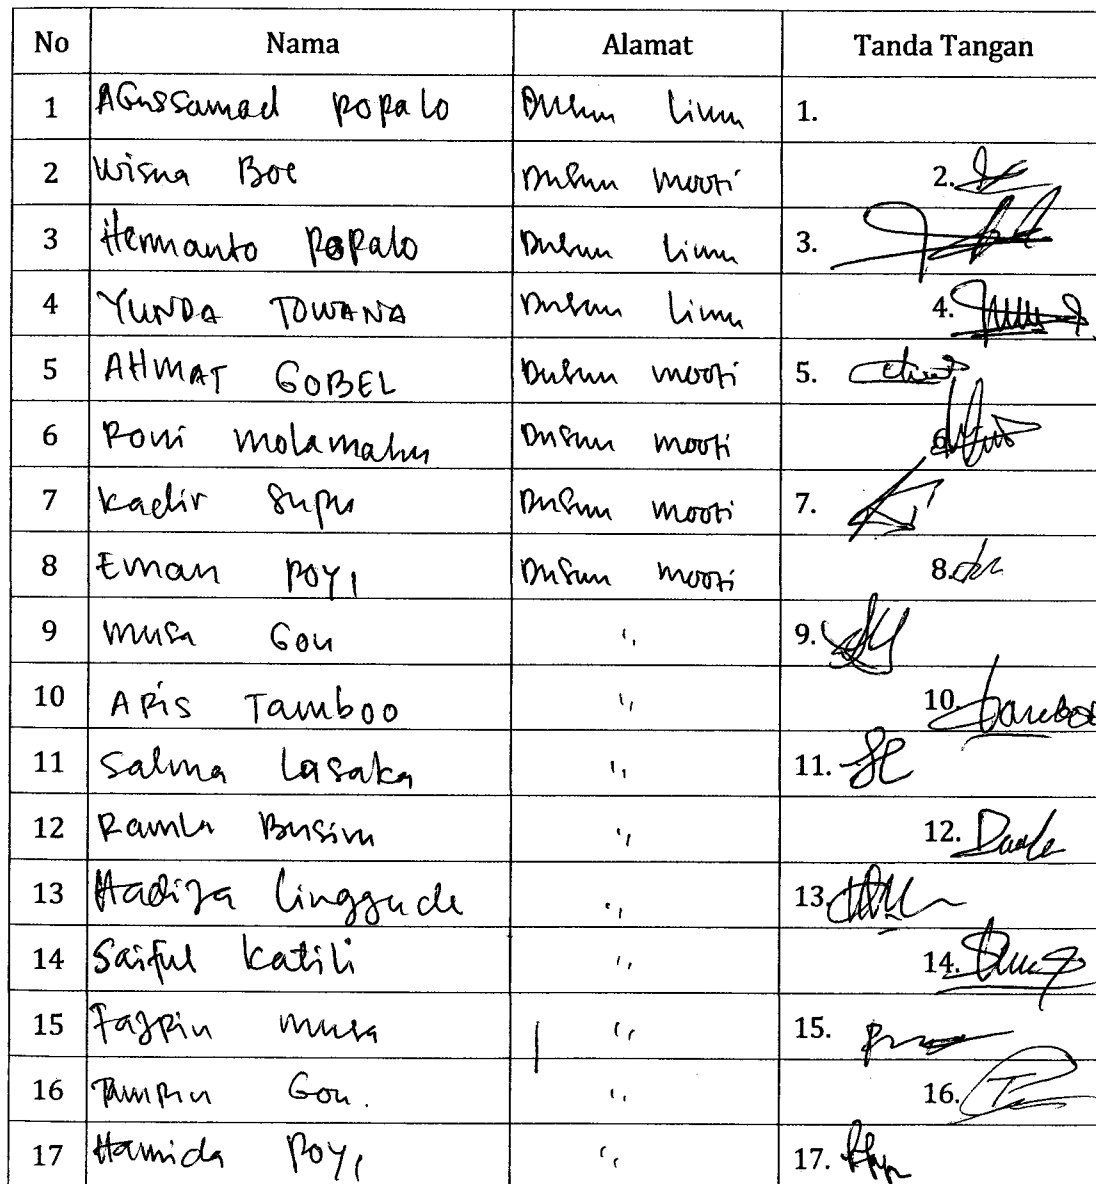 No Nama Alamat Tanda Tangan
1 AGussamad Popalo Dusun Limu 1.
2 Wisna Boe Dusun Mooti 2.
3 Hermanto Popalo Dusun Limu 3.
4 YUNDA TOWANA Dusun Limu 4.
5 AHMAT GOBEL Dusun Mooti 5.
6 Roni Molamahu Dusun Mooti 6.
7 Kadir Supu Dusun Mooti 7.
8 Eman Poyi Dusun Mooti 8.
9 Musa Gou ,, 9.
10 ARis Tamboo ,, 10. Tamboo
11 Salma Lasaka ,, 11.
12 Ramla Busimu ,, 12.
13 Hadija Linggude ,, 13.
14 Saiful Katili ,, 14.
15 FajRin Musa ,, 15.
16 Gou. ,, 16.
17 Hamida Poyi ,, 17.